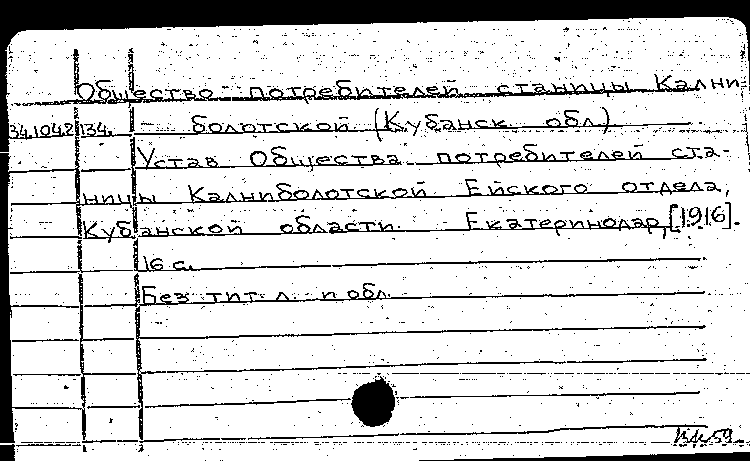 Общество потребителей станицы Кални-
34.10.42.134. болотской (Кубанск. обл.)
Устав Общества потребителей ста-
ницы Калниболотской Ейского отдела,
Кубанской области. Екатеринодар, [1916].
16 с.
Без тит. л. и обл.